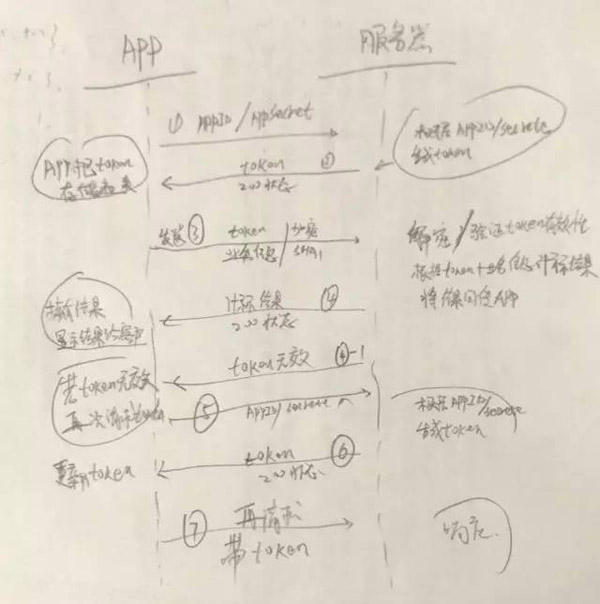 APP
服务器
① AppID/Appsecret
根据 APPID/secrete
生成token
token ②
200状态
APP把token
存储起来
发送 ③ token / 加密
业务信息 /
解密/验证token有效性
根据token+业务信息计算结果
将结果回复APP
计算结果 ④
200状态
结果
显示结果给用户
token无效 ④-1
若token无效
再次请求
⑤ AppID/secrete
根据APPID/secrete
生成token
token ⑥
200状态
更新token
⑦ 再请求
带token
响应